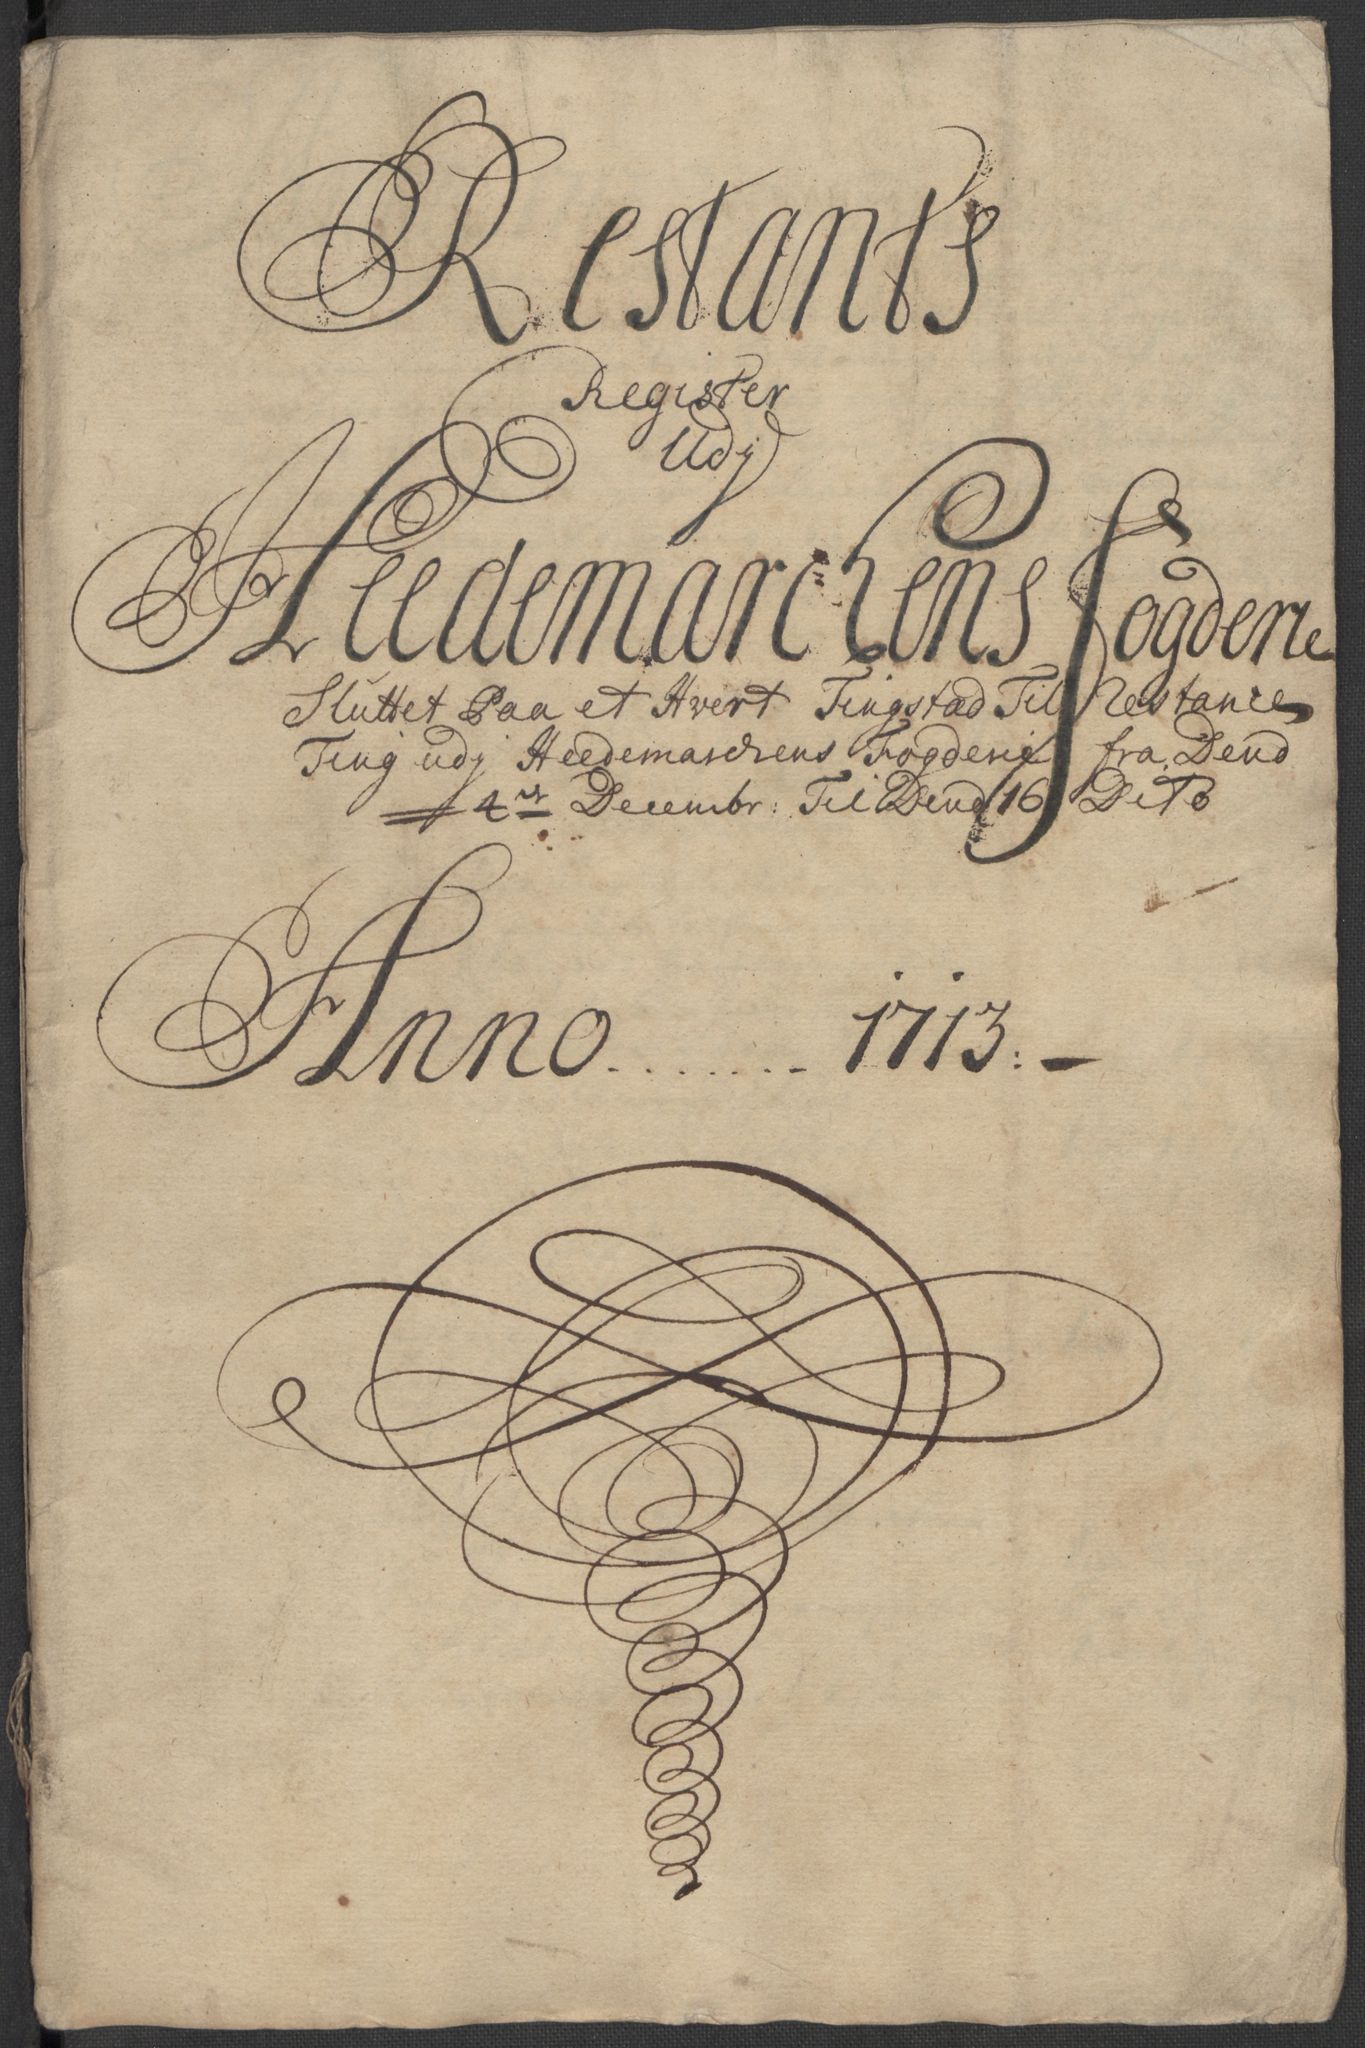 Restants
Register
Udj
Heedemarchens Fogderie
Sluttet Paa et Hvert Tingstad Til Restance
Ting udj Heedemarchens Fogderie fra Dend
4de Decembr: Til Dend 16 Dito
Anno ....... 1713:-